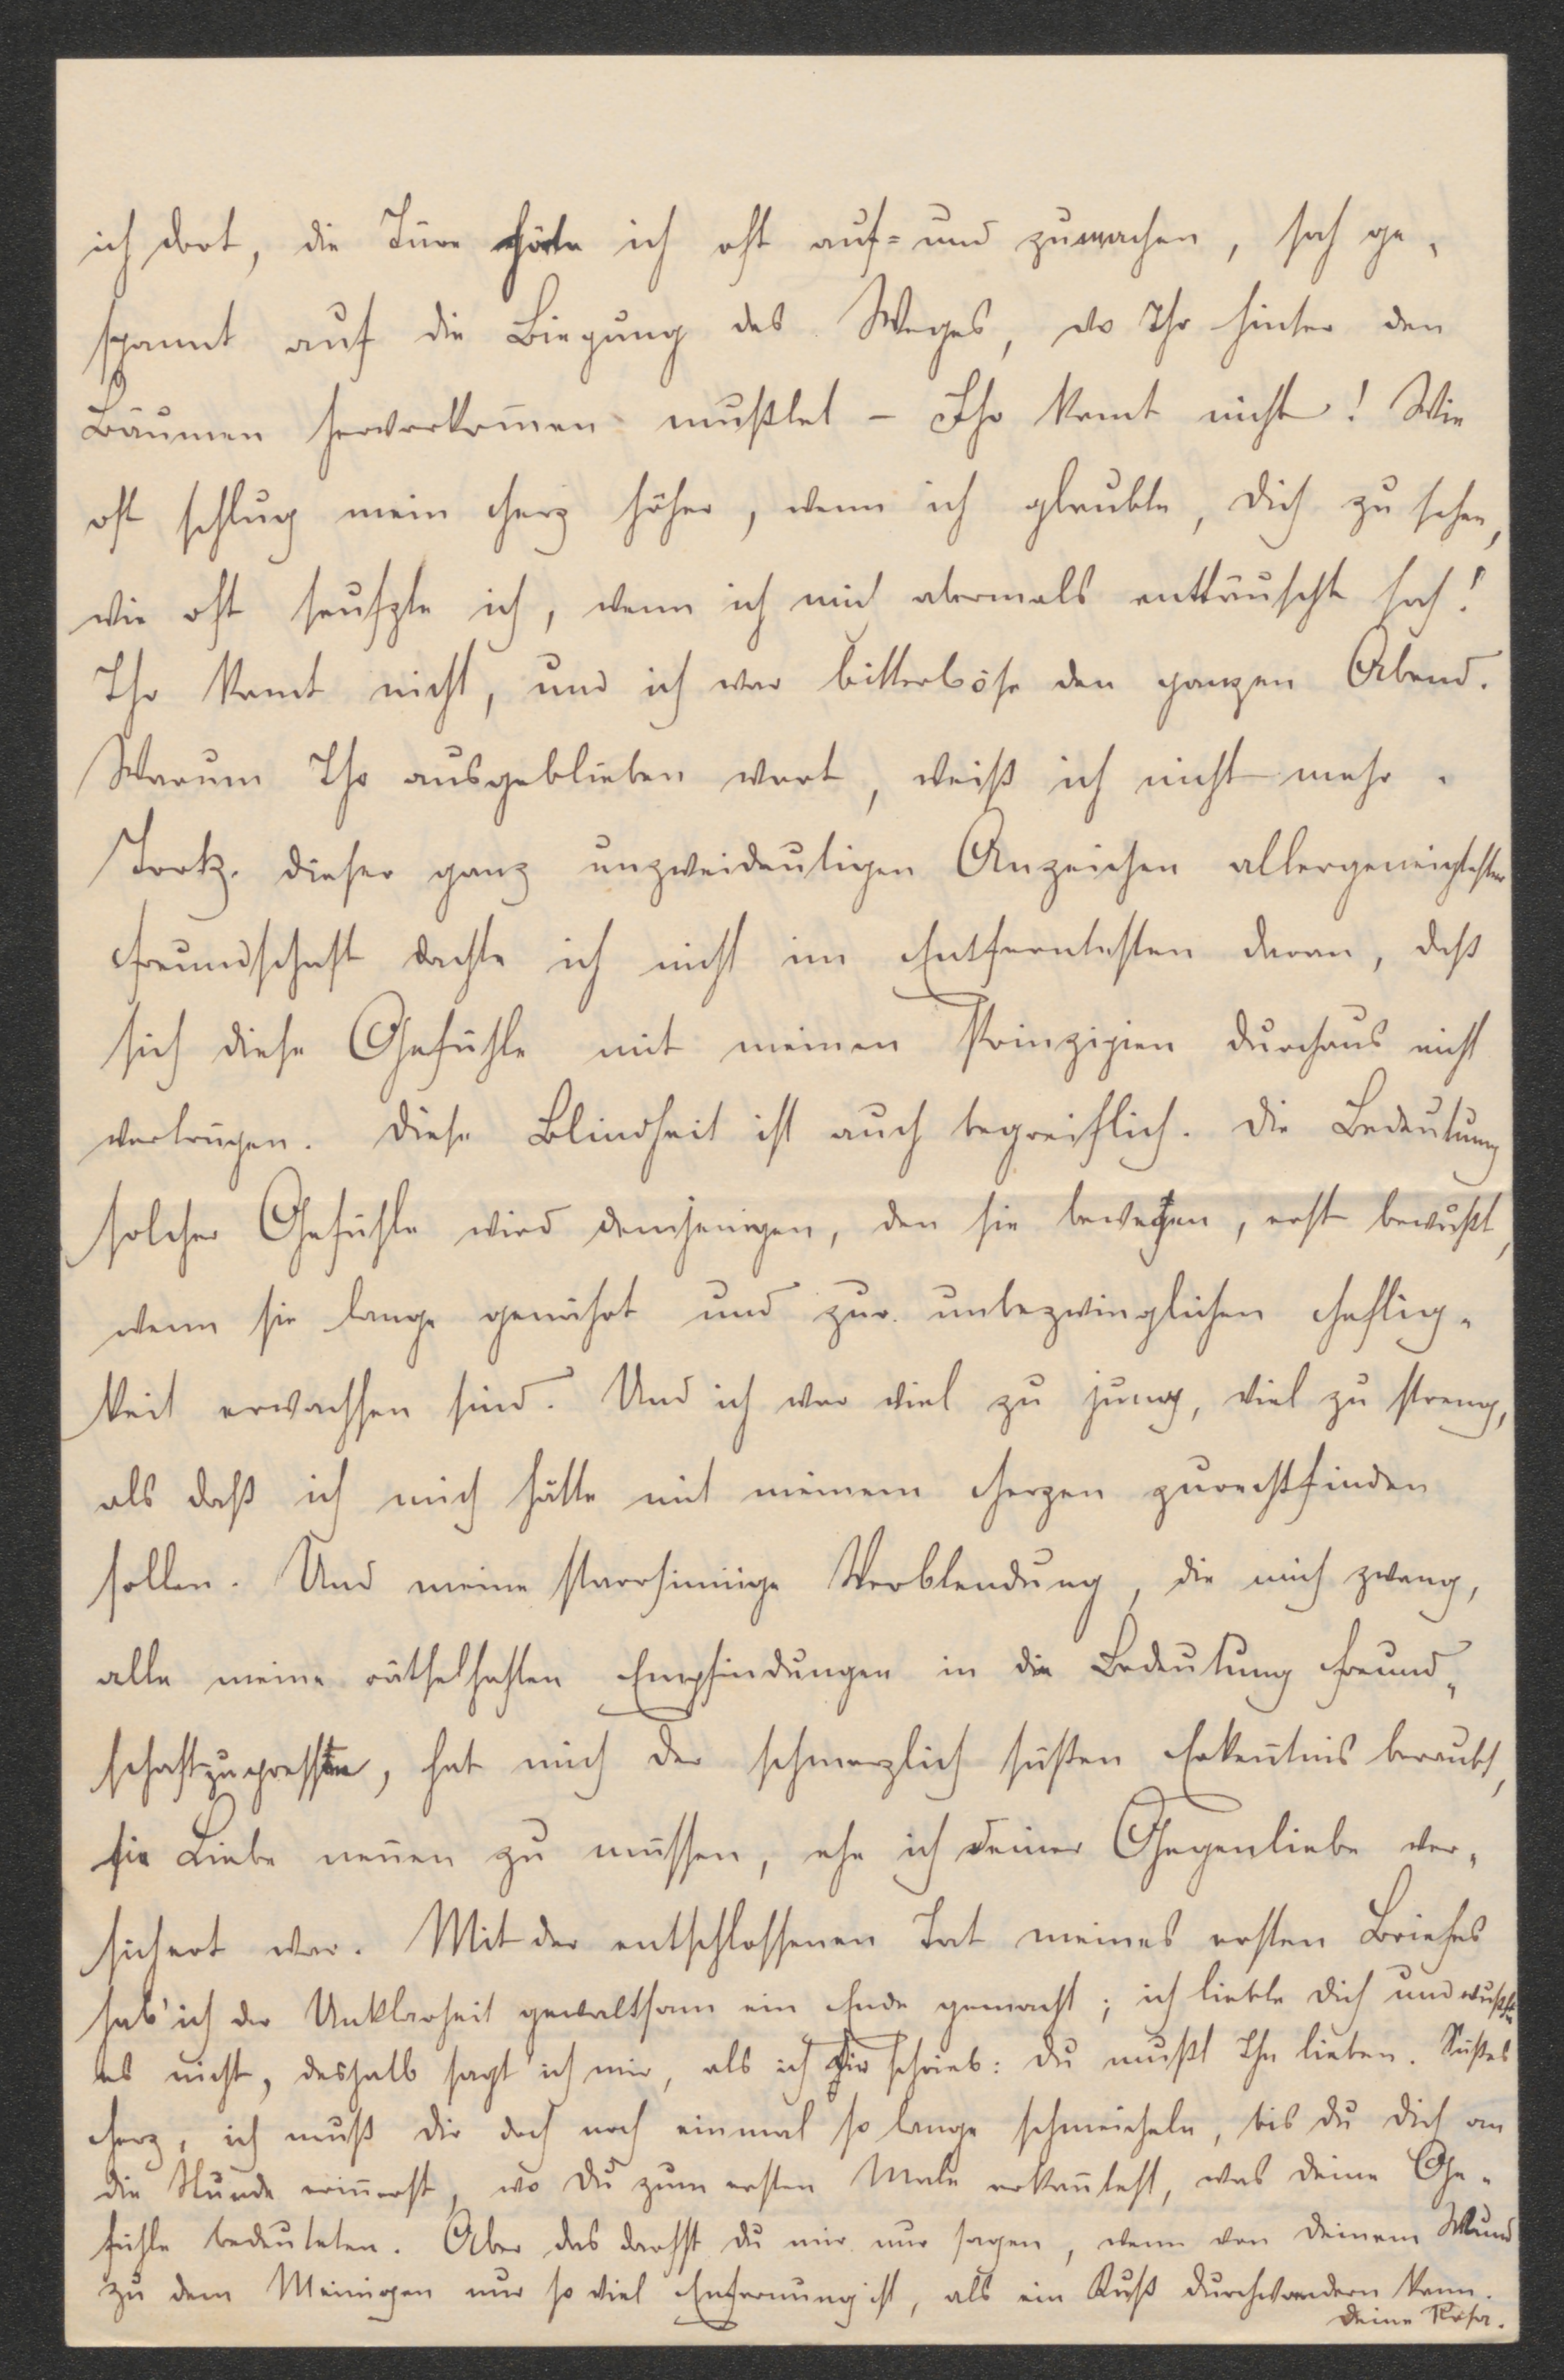 ich dort, die Türe hörte ich oft auf= und zumachen, sah ge-
spannt auf die Biegung des Weges, wo Ihr hinter den
Bäumen hervorkom̅en mußtet – Ihr kamt nicht! Wie
oft schlug mein Herz höher, wenn ich glaubte, Dich zu sehen,
wie oft seufzte ich, wenn ich mich abermals enttäuscht sah!
Ihr kamt nicht, und ich war bitterböse den ganzen Abend.
Warum Ihr ausgeblieben wart, weiß ich nicht mehr.
Trotz dieser ganz unzweideutigen Anzeichen allergeneigtester
Freundschaft dachte ich nicht im Entferntesten daran, daß
sich diese Gefühle mit meinen Prinzipien durchaus nicht
vertrügen. Diese Blindheit ist auch begreiflich. Die Bedeutung
solcher Gefühle wird demjenigen, den sie bewegen, erst bewußt,
wenn sie lange genährt und zur unbezwinglichen Heftig-
keit erwachsen sind. Und ich war viel zu jung, viel zu streng,
als daß ich mich hätte mit meinem Herzen zurechtfinden
sollen. Und meine starrsinnige Verblendung, die mich zwang,
alle meine rätselhaften Empfindungen in die Bedeutung Freund-
schaft zu pressen, hat mich der schmerzlich süßen Erken̅tnis beraubt,
sie Liebe nen̅en zu müssen, ehe ich Deiner Gegenliebe ver-
sichert war. Mit der entschlossenen Tat meines ersten Briefes
hab' ich der Unklarheit gewaltsam ein Ende gemacht; ich liebte Dich und wußte
es nicht, deshalb sagt' ich mir, als ich Dir schrieb: Du mußt Ihn lieben. Süßes
Herz, ich muß Dir doch noch einmal so lange schmeicheln, bis Du Dich an
die Stunde erin̅erst, wo Du zum ersten Male erkan̅test, was Deine Ge-
fühle bedeuteten. Aber das darfst Du mir nur sagen, wenn von Deinem Mund
zu dem Meinigen nur so viel Entfernung ist, als ein Kuß durchwandern kann.
Deine Rosa.